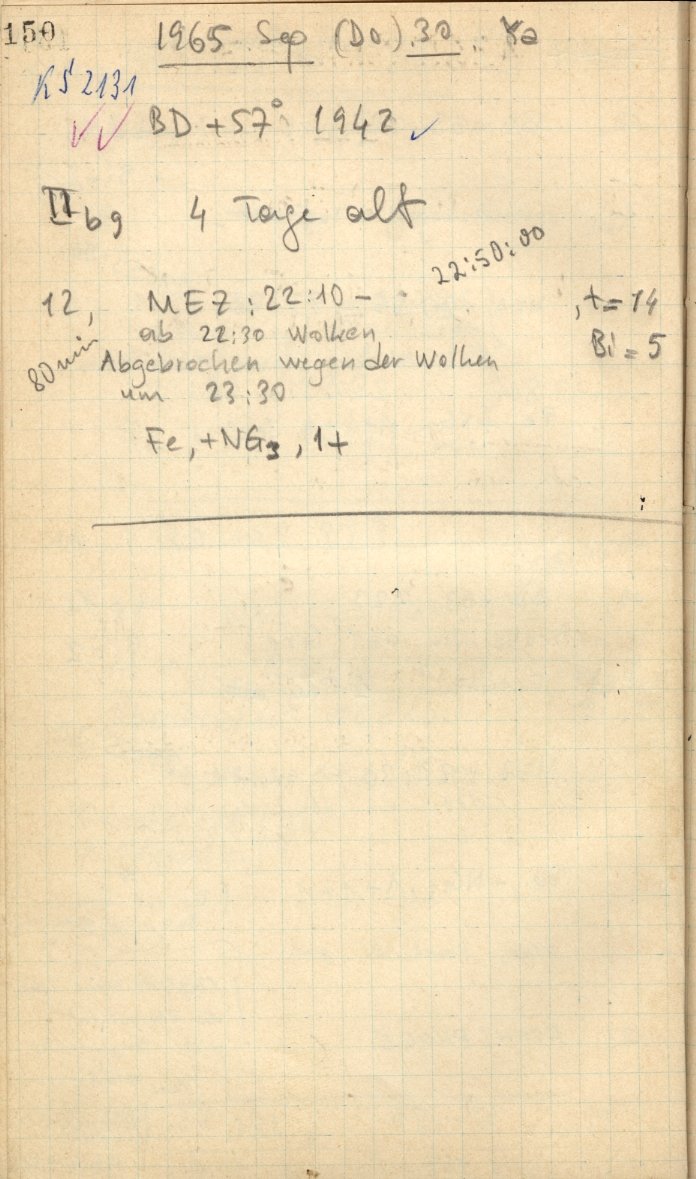 150 1965 Sep (Do) 30 Ka
KS 2131
BD +57° 1942
II b g 4 Tage alt
22:50:00
12, MEZ: 22:10 – , t = 14
ab 22:30 Wolken Bi = 5
80 min Abgebrochen wegen der Wolken
um 23:30
Fe, +NG3, 1+